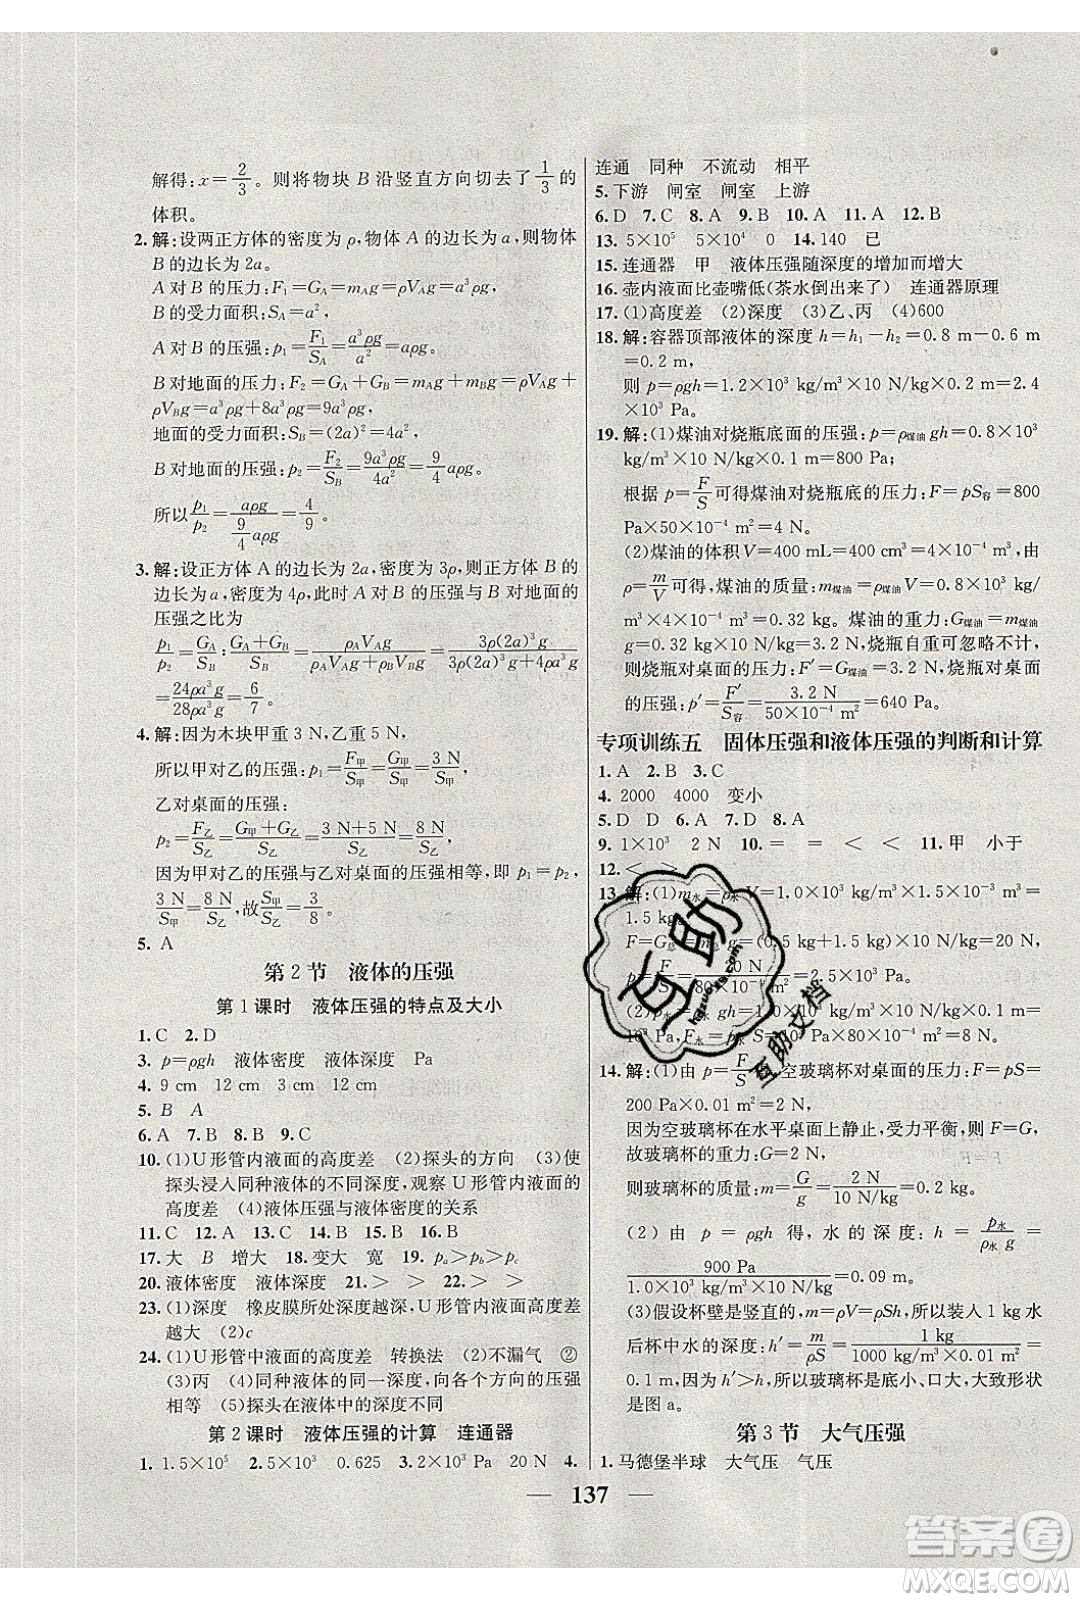 解得:x=2/3。则将物块 B 沿竖直方向切去了1/3的
体积。
2.解:设两正方体的密度为ρ,物体 A 的边长为a,则物体
B 的边长为2a。
A 对 B 的压力:F₁=G_A=m_A g=ρV_A g=a³ρg
B 的受力面积:S_A=a²,
A 对 B 的压强:p₁=F₁/S_A=a³ρg/a²=aρg
B 对地面的压力:F₂=G_A+G_B=m_A g+m_B g=ρV_A g+
ρV_B g=a³ρg+8a³ρg=9a³ρg,
地面的受力面积:S_B=(2a)²=4a²,
B 对地面的压强:p₂=F₂/S_B=9a³ρg/4a²=9/4 aρg
所以p₁/p₂=aρg/(9/4 aρg)=4/9。
3.解:设正方体 A 的边长为 2a,密度为 3ρ,正方体 B 的
边长为a,密度为 4ρ,此时 A 对 B 的压强与 B 对地面的
压强之比为
p₁/p₂=G_A/S_B:(G_A+G_B)/S_B=ρ_A V_A g/(ρ_A V_A g+ρ_B V_B g)=3ρ(2a)³g/(3ρ(2a)³g+4ρa³g)
=24ρa³g/28ρa³g=6/7。
4.解:因为木块甲重 3 N,乙重 5 N,
所以甲对乙的压强:p₁=F甲/S甲=G甲/S甲=3 N/S甲,
乙对桌面的压强:
p₂=F乙/S乙=(G甲+G乙)/S乙=(3 N+5 N)/S乙=8 N/S乙,
因为甲对乙的压强与乙对桌面的压强相等,即 p₁=p₂,
3 N/S甲=8 N/S乙,则S甲/S乙=3/8。
5. A
第 2 节 液体的压强
第 1 课时 液体压强的特点及大小
1.C 2.D
3. p=ρgh 液体密度 液体深度 Pa
4. 9 cm 12 cm 3 cm
5. B A
6.A 7.B 8.B 9.C
10.(1)U 形管内液面的高度差 (2)探头的方向 (3)使
探头浸入同种液体的不同深度,观察 U 形管内液面的
高度差 (4)液体压强与液体密度的关系
11.C 12.A 13.D 14.D 15.B 16.B
17.大 B 增大 18.变大 宽 19. pₐ>p_b>p_c
20.液体密度 液体深度 21.> > 22.> >
23.(1)深度 橡皮膜所处深度越深,U 形管内液面高度差
越大 (2)c
24.(1)U 形管中液面的高度差 转换法 (2)不漏气 ②
(3)丙 (4)同种液体的同一深度,向各个方向的压强
相等 (5)探头在液体中的深度不同
第 2 课时 液体压强的计算 连通器
1. 1.5×10⁵ 2.3 0.625 3.2×10³ Pa 20 N 4.
连通 同种 不流动 相平
5.下游 闸室 闸室 上游
6.D 7.C 8.A 9.B 10.A 11.A 12.B
13. 5×10⁵ 5×10⁴ 0 14.140 已
15.连通器 甲 液体压强随深度的增加而增大
16.壶内液面比壶嘴低(茶水倒出来了) 连通器原理
17.(1)高度差 (2)深度 (3)乙、丙 (4)600
18.解:容器顶部液体的深度 h=h₁-h₂=0.8 m-0.6 m
=0.2 m,
则 p=ρgh=1.2×10³ kg/m³×10 N/kg×0.2 m=2.4
×10³ Pa。
19.解:(1)煤油对烧瓶底面的压强:p=ρ煤油gh=0.8×10³
kg/m³×10 N/kg×0.1 m=800 Pa,
根据 p=F/S可得煤油对烧瓶底的压力:F=pS容=800
Pa×50×10⁻⁴ m²=4 N。
(2)煤油的体积 V=400 mL=400 cm³=4×10⁻⁴ m³,由
ρ=m/V可得,煤油的质量:m煤油=ρ煤油V=0.8×10³ kg/
m³×4×10⁻⁴ m³=0.32 kg。煤油的重力:G煤油=m煤油
g=0.32 kg×10 N/kg=3.2 N,烧瓶自重可忽略不计,
则烧瓶对桌面的压力:F′=G煤油=3.2 N,烧瓶对桌面
的压强:p′=F′/S容=3.2 N/(50×10⁻⁴ m²)=640 Pa。
专项训练五 固体压强和液体压强的判断和计算
1.A 2.B 3.C
4. 2000 4000 变小
5.D D 6.A 7.D 8.A
9. 1×10³ 2 N 10. = = < < 11.甲 小于
12. < >
13.解:(1)m水=ρ水V=1.0×10³ kg/m³×1.5×10⁻³ m³=
1.5 kg。
F=G总=m总g=(0.5 kg+1.5 kg)×10 N/kg=20 N,
p=F/S=20 N/(80×10⁻⁴ m²)=2.5×10³ Pa。
(2)p水=ρ水gh=1.0×10³ kg/m³×10 N/kg×
Pa,F水=p水S=10³ Pa×80×10⁻⁴ m²=8 N。
14.解:(1)由 p=F/S得,空玻璃杯对桌面的压力:F=pS=
200 Pa×0.01 m²=2 N,
因为空玻璃杯在水平桌面上静止,受力平衡,则 F=G,
故玻璃杯的重力:G=F=2 N,
则玻璃杯的质量:m=G/g=2 N/(10 N/kg)=0.2 kg。
(2)由 p=ρgh 得,水的深度:h=p水/(ρ水g)=
900 Pa/(1.0×10³ kg/m³×10 N/kg)=0.09 m。
(3)假设杯壁是竖直的,m=ρV=ρSh,所以装入 1 kg 水
后杯中水的深度:h′=m/ρS=1 kg/(1000 kg/m³×0.01 m²)=0.1 m,
因为 h′>h,所以玻璃杯底小、口大,大致形状
是图 a。
第 3 节 大气压强
1.马德堡半球 大气压 气压
137
互助
hgzuoye.com
互助文档
答案圈
MXQE.COM